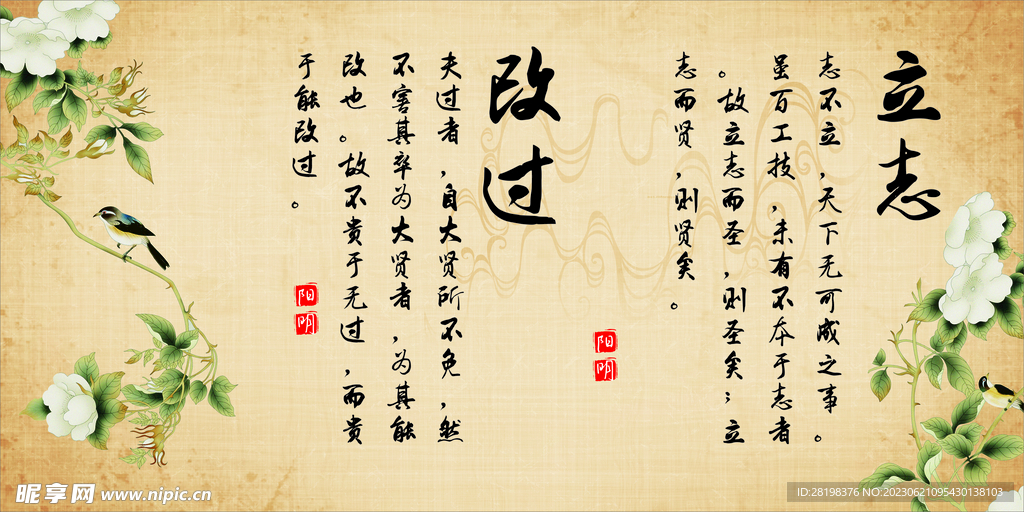 立志
志不立,天下无可成之事。
虽百工技,未有不本于志者
。故立志而圣,则圣矣;立
志而贤,则贤矣。
阳明
改过
夫过者,自大贤所不免,然
不害其卒为大贤者,为其能
改也。故不贵于无过,而贵
于能改过。
阳明
昵享网 www.nipic.cn
ID:28198376 NO:20230621095430138103